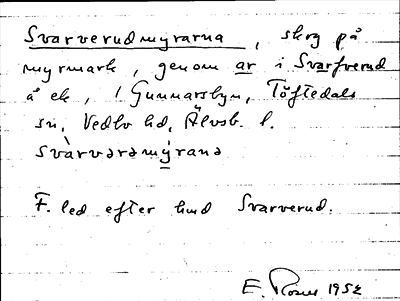 Svarverudmyrarna, skog på
myrmark, genom ar i Svarfverud
å ek, i Gunnarsbyn, Töftedals
sn, Vedbo hd, Älvsb. l.
svàrvərəmy̱rana
F. led efter hmd Svarverud.
E. Rosen 1952